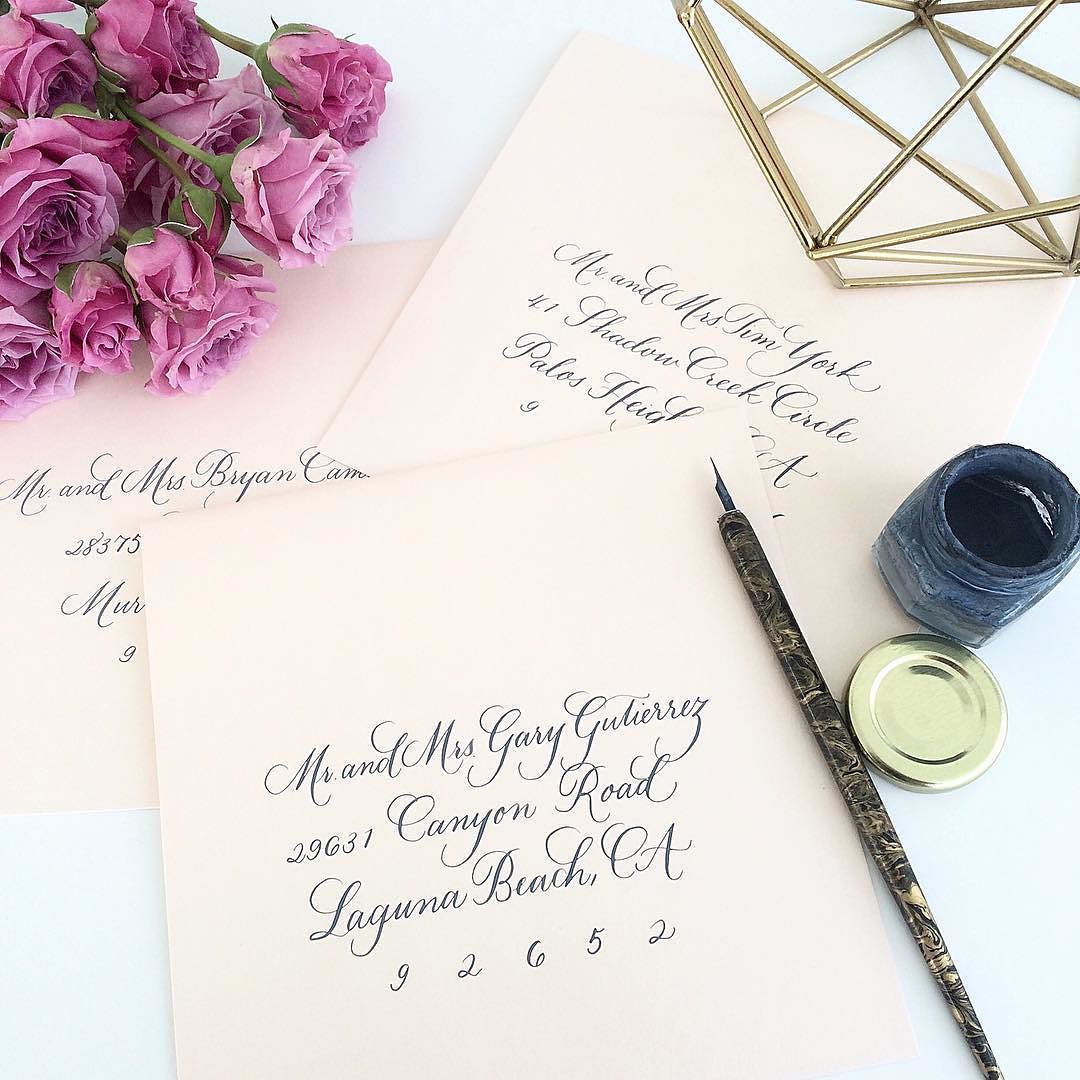 Mr. and Mrs Tim York
41 Shadow Creek Circle
Palos Heigh CA
9
Mr. and Mrs. Bryan Cam
28375
Mur
9
Mr. and Mrs. Gary Gutierrez
29631 Canyon Road
Laguna Beach, CA
9 2 6 5 2